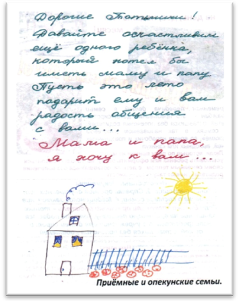 Дорогие Потомки!
Давайте осчастливим
ещё одного ребёнка,
который хотел бы
иметь маму и папу
Пусть это лето
подарит ему и вам
радость общения
с вами...
Мама и папа,
я хочу к вам...
Приёмные и опекунские семьи.